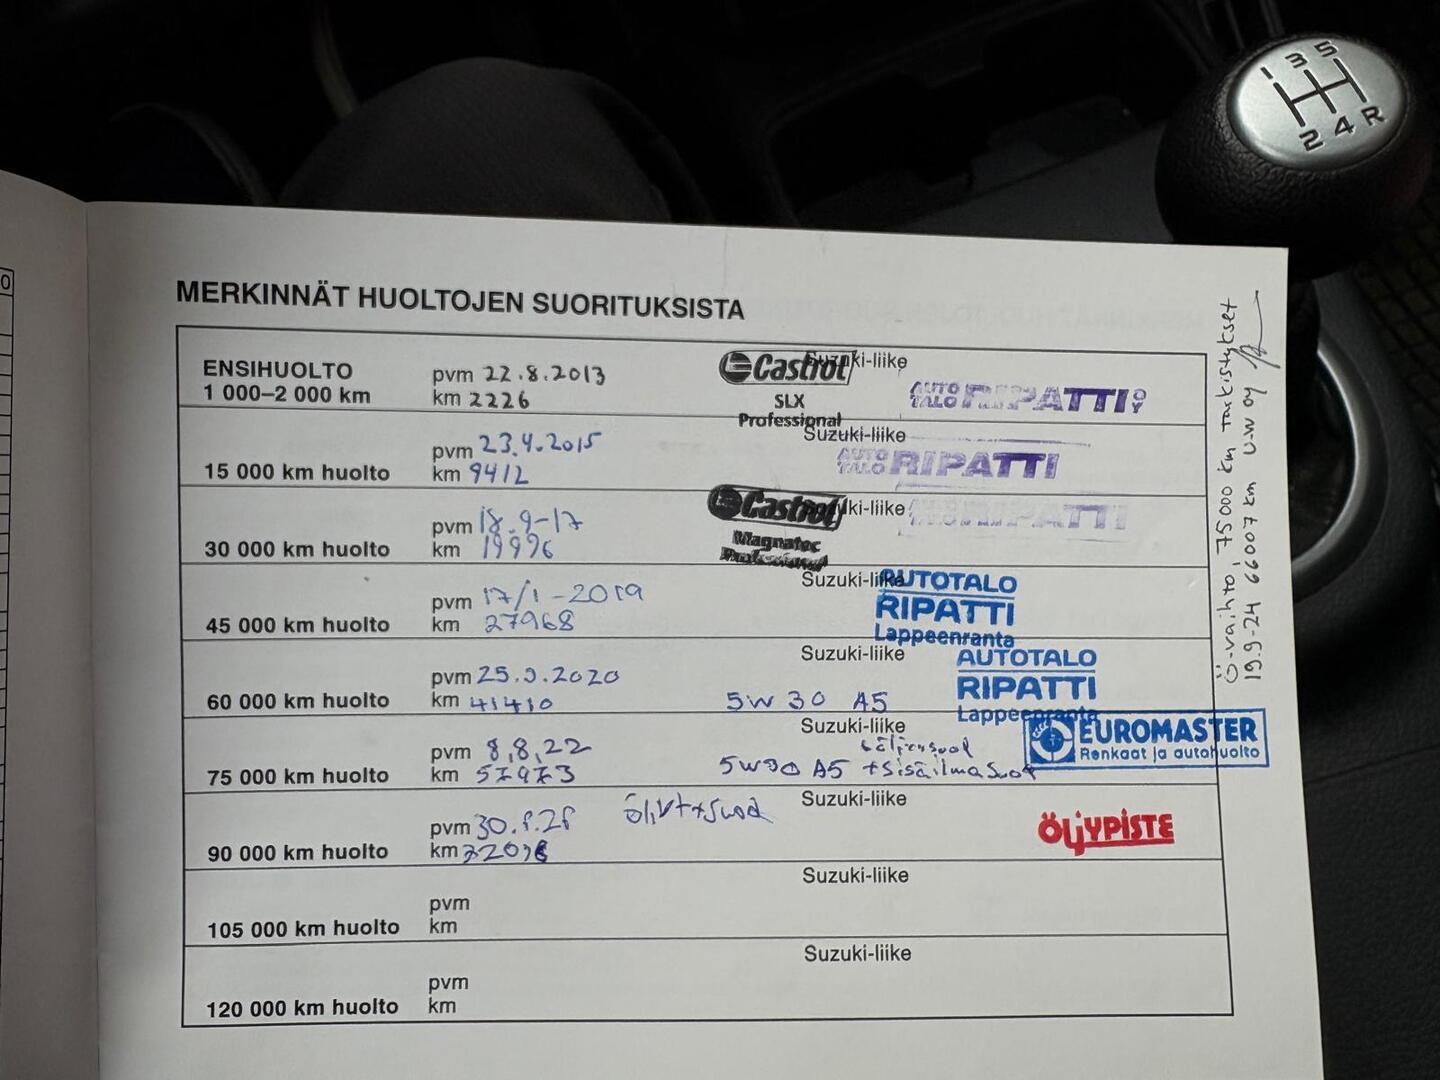 1 3 5
2 4 R
0
MERKINNÄT HUOLTOJEN SUORITUKSISTA
ENSIHUOLTO
1 000–2 000 km
pvm 22.8.2013
km 2226
Castrol
SLX
Professional
Suzuki-liike
AUTO TALO RIPATTI OY
15 000 km huolto
pvm 23.4.2015
km 9412
Suzuki-liike
AUTO TALO RIPATTI
30 000 km huolto
pvm 18.9-17
km 19996
Castrol
Magnatec
Professional
Suzuki-liike
RIPATTI
45 000 km huolto
pvm 17/1-2019
km 27968
Suzuki-liike
AUTOTALO
RIPATTI
Lappeenranta
60 000 km huolto
pvm 25.9.2020
km 41410
5W30 A5
Suzuki-liike
AUTOTALO
RIPATTI
Lappeenranta
75 000 km huolto
pvm 8,8,22
km 57973
Suzuki-liike
5W30 A5 + sisäilmasuod
EUROMASTER
Renkaat ja autohuolto
90 000 km huolto
pvm
km
Suzuki-liike
ÖLJYPISTE
105 000 km huolto
pvm
km
Suzuki-liike
120 000 km huolto
pvm
km
Suzuki-liike
Ö-vaihto, 75000 km tarkistukset
19.9-24 66007 km